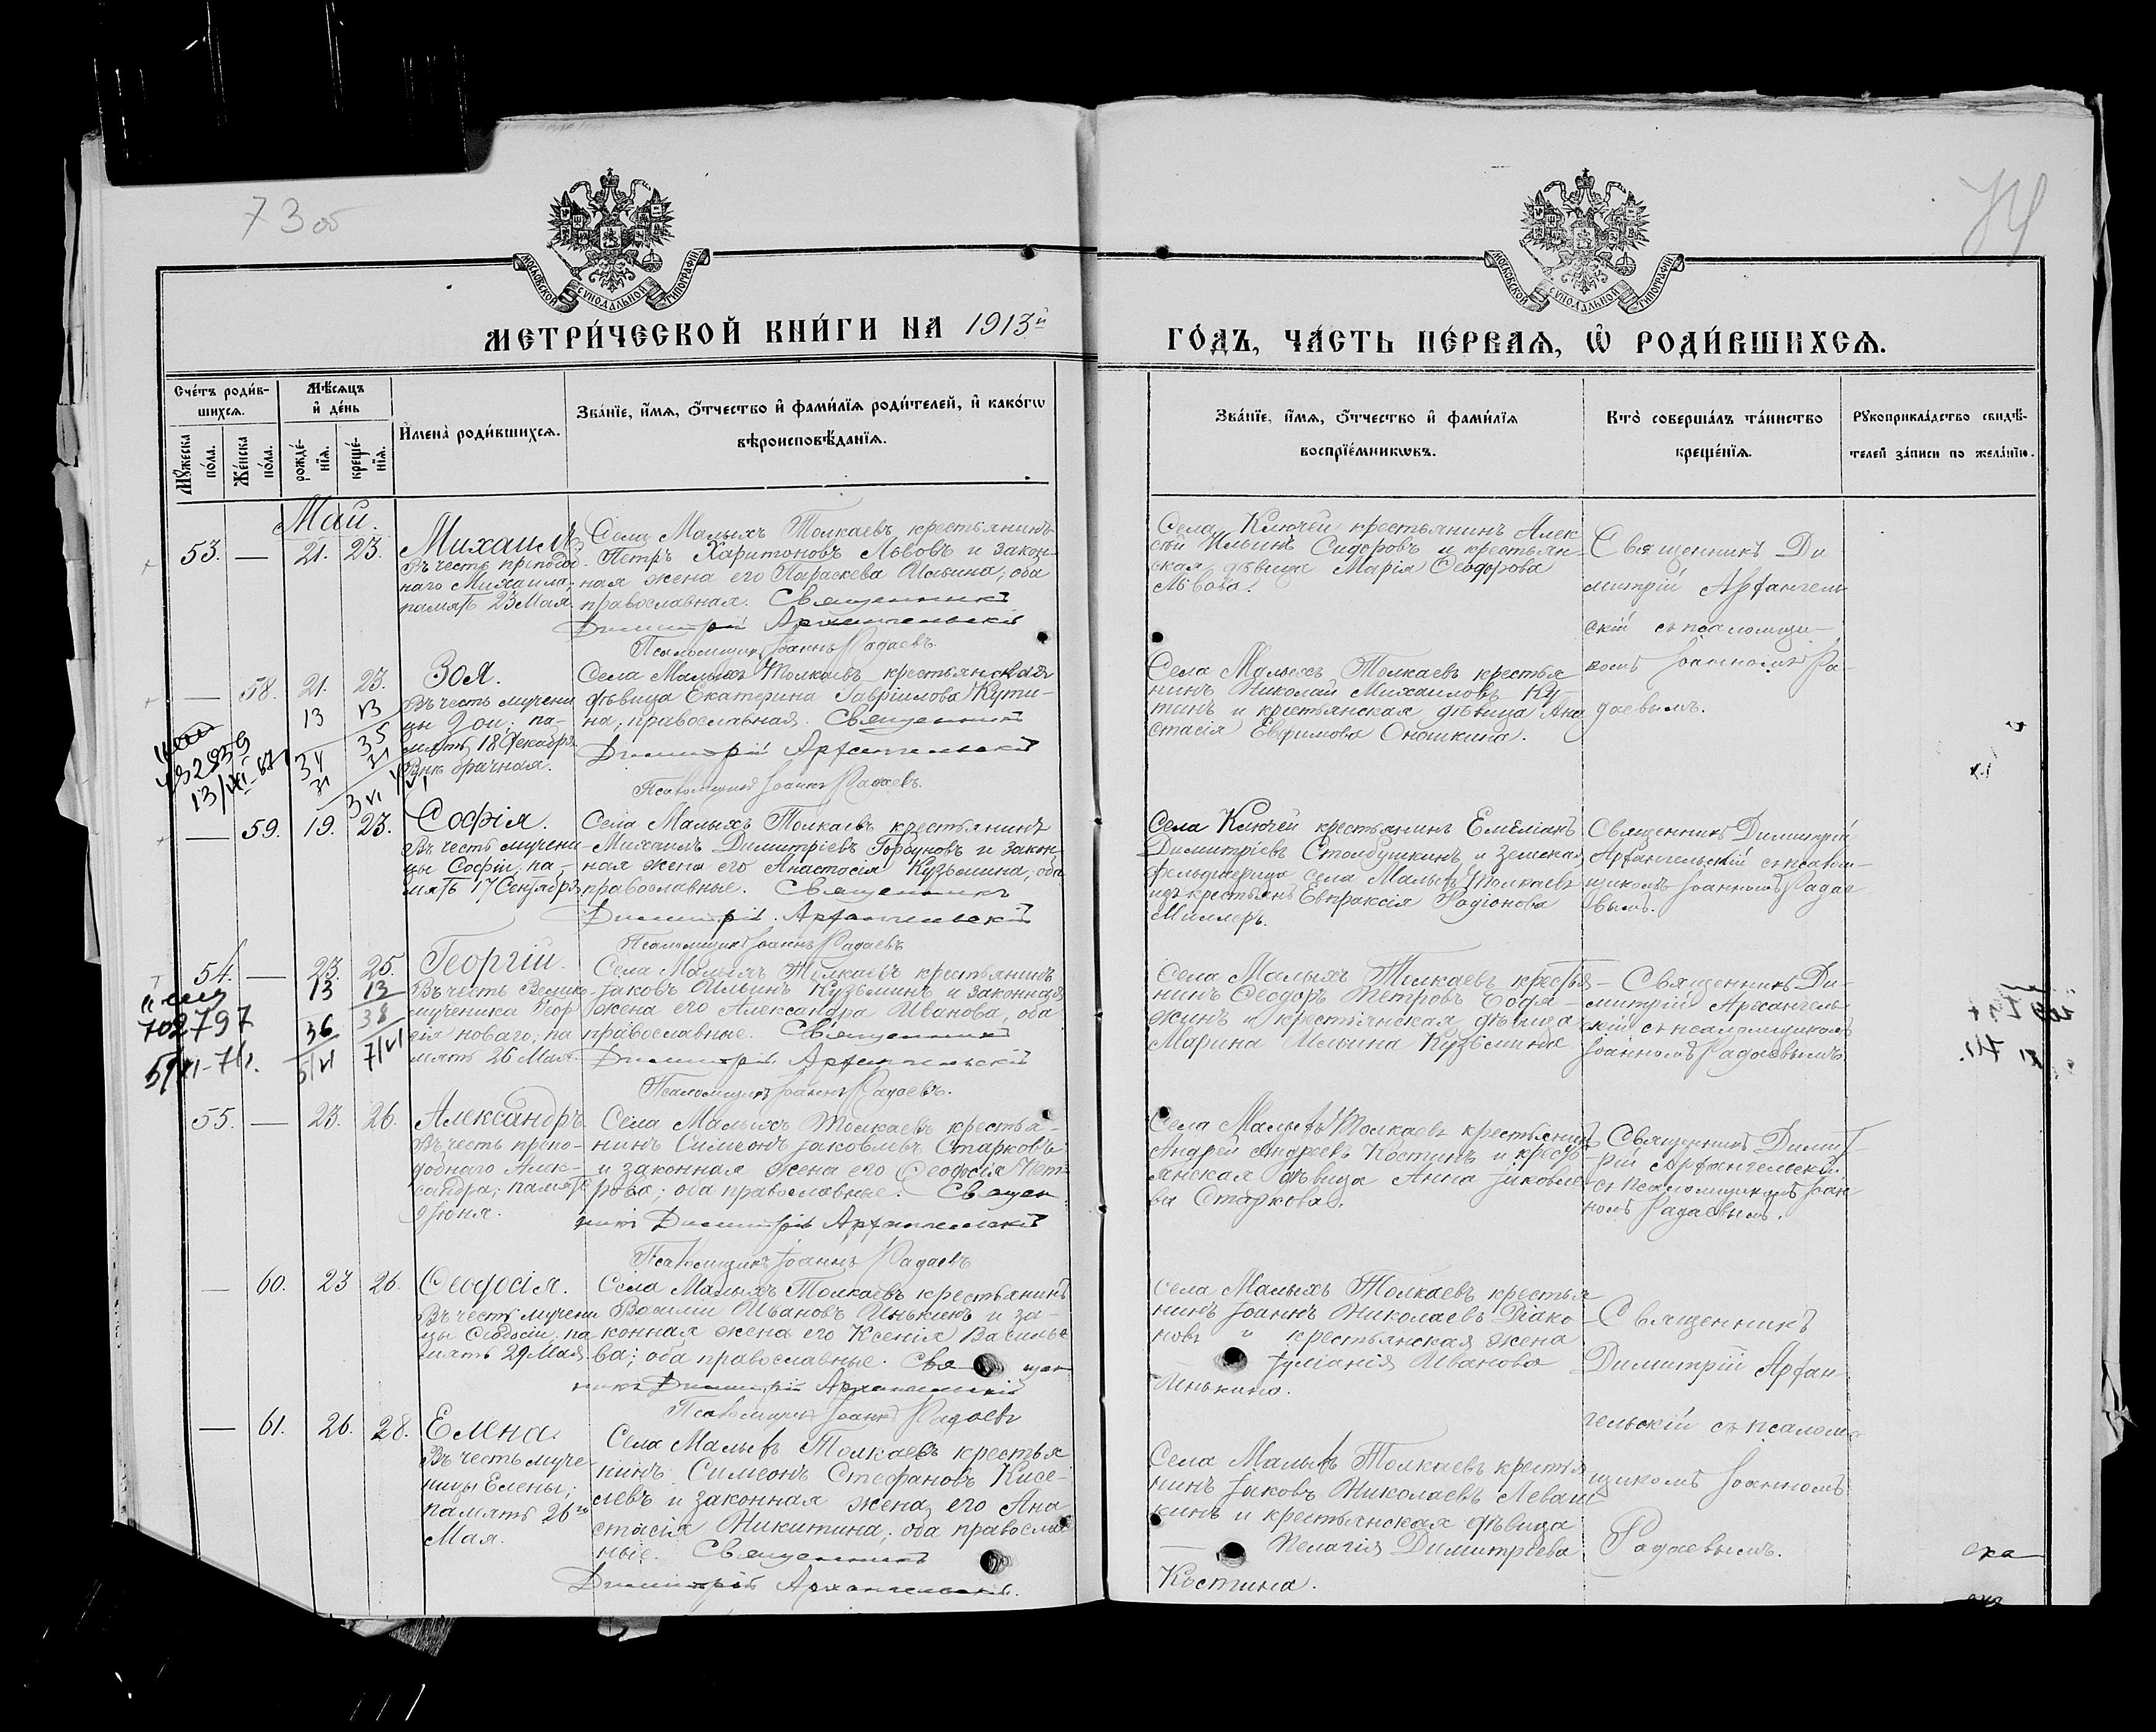 73 об
74
МОСКОВСКОЙ СѴНОДАЛЬНОЙ ТИПОГРАФІИ
МОСКОВСКОЙ СѴНОДАЛЬНОЙ ТИПОГРАФІИ
МЕТРИ́ЧЕСКОЙ КНИ́ГИ НА 1913й
ГО́ДЪ, ЧА́СТЬ ПЕ́РВАЯ, Ѡ РОДИ́ВШИХСЯ.
Сче́тъ роди́в-
шихся.
Мѣ́сяцъ
и де́нь
Мꙋжеска по́ла.
Же́нска по́ла.
рожде́-нїя.
креще́-нїя.
И҆мена̀ роди́вшихся.
Зва́нїе, и҆́мя, ѻ҆́тчество и҆ фами́лїя роди́телей, и҆ како́гѡ
вѣроисповѣ́данїя.
Зва́нїе, и҆́мя, ѻ҆́тчество и҆ фами́лїя
воспрїе́мникѡвъ.
Кто̀ соверша́лъ та́инство
креще́нїя.
Рꙋкоприкла́дство свидѣ́-
телей за́писи по жела́нїю.
Май.
53. — 21. 23. Михаилъ
Въ честь преподоб-
наго Михаила;
память 23 Мая.
Села Малыхъ Толкаевъ крестьянинъ
Петръ Харитоновъ Львовъ и закон-
ная жена его Параскева Ильина; оба
православная. Священникъ
Димитрій Архангельскій
Псаломщикъ Іоаннъ Радаевъ.
Села Ключей крестьянинъ Алек-
сѣй Ильинъ Сидоровъ и крестьян-
ская дѣвица Марія Ѳеодорова
Львова.
Священникъ Ди
митрій Архангель
скій съ псаломщи-
комъ Іоанномъ Ра-
даевымъ.
— 58. 21. 23. Зоя.
Въ честь мучени
цы Зои; па-
мять 18 Декабря.
Внѣ брачная.
13 13
34 35
31 31
3 VI
13/VI-67
Села Малыхъ Толкаевъ крестьянская
дѣвица Екатерина Гавріилова Кути-
на; православная. Священникъ
Димитрій Архангельскій
Псаломщикъ Іоаннъ Радаевъ.
Села Малыхъ Толкаевъ крестья
нинъ Николай Михаиловъ Ку-
тинъ и крестьянская дѣвица Ана
стасія Евфимова Оношкина.
— 59. 19. 23. Софія.
Въ честь мучени
цы Софіи, па-
мять 17 Сентября
Села Малыхъ Толкаевъ крестьянинъ
Михаилъ Димитріевъ Горбуновъ и закон-
ная жена его Анастасія Кузьмина, оба
православные. Священникъ
Димитрій Архангельскій
Псаломщикъ Іоаннъ Радаевъ
Села Ключей крестьянинъ Емеліанъ
Димитріевъ Столбушкинъ и земская
фельдшерица села Малыхъ Толкаевъ
изъ крестьянъ Евпраксія Родіонова
Миллеръ.
Священникъ Димитрій
Архангельскій съ псалом-
щикомъ Іоанномъ Радае
вымъ.
54. — 23. 25. Георгій.
Въ честь Велико-
мученика Геор
гія новаго, па
мять 26 Мая.
13 13
36 38
5/VI 7/VI
702797
Села Малыхъ Толкаевъ крестьянинъ
Іаковъ Ильинъ Кузьминъ и законная
жена его Александра Иванова, оба
православные. Священникъ
Димитрій Архангельскій
Псаломщикъ Іоаннъ Радаевъ.
Села Малыхъ Толкаевъ крестья-
нинъ Ѳеодоръ Петровъ
и крестьянская дѣвица
Марина Ильина Кузьмина
Священникъ Ди-
митрій Архангель-
скій съ псаломщикомъ
Іоанномъ Радаевымъ.
55. — 23. 26. Александръ
Въ честь препо-
добнаго Алек-
сандра; память
9 Іюня.
Села Малыхъ Толкаевъ крестья-
нинъ Симеонъ Іаковлевъ Старковъ
и законная жена его Ѳеодосія Пет-
рова; оба православные. Священ-
никъ Димитрій Архангельскій
Псаломщикъ Іоаннъ Радаевъ
Села Малыхъ Толкаевъ крестьянинъ
Андрей Андреевъ Костинъ и кресть
янская дѣвица Анна Іаковле
ва Старкова.
Священникъ Димит-
рій Архангельскій
съ псаломщикомъ Іоан
номъ Радаевымъ.
— 60. 23 26. Ѳеодосія.
Въ честь мучени
цы Ѳеодосіи, па
мять 29 Мая.
Села Малыхъ Толкаевъ крестьянинъ
Василій Ивановъ Инькинъ и за-
конная жена его Ксенія Василье
ва; оба православные. Священ
никъ Димитрій Архангельскій
Псаломщикъ Іоаннъ Радаевъ
Села Малыхъ Толкаевъ крестья
нинъ Іоаннъ Николаевъ Діако-
новъ и крестьянская жена
Іуліанія Иванова
Инькина.
Священникъ
Димитрій Архан
гельскій съ псалом-
щикомъ Іоанномъ
Радаевымъ.
— 61. 26. 28. Елена.
Въ честь муче-
ницы Елены;
память 26го
Мая.
Села Малыхъ Толкаевъ крестья
нинъ Симеонъ Стефановъ Кисе-
левъ и законная жена его Ана
стасія Никитина; оба православ
ные. Священникъ
Димитрій Архангельскій.
Села Малыхъ Толкаевъ крестья
нинъ Іаковъ Николаевъ Леваш
кинъ и крестьянская дѣвица
— Пелагія Димитріева
Костина.